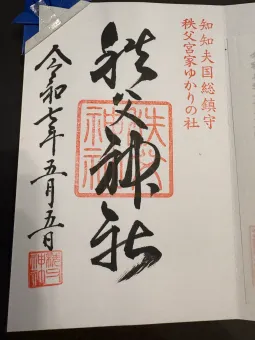 知知夫国総鎮守
秩父宮家ゆかりの社
秩父神社
令和七年五月五日